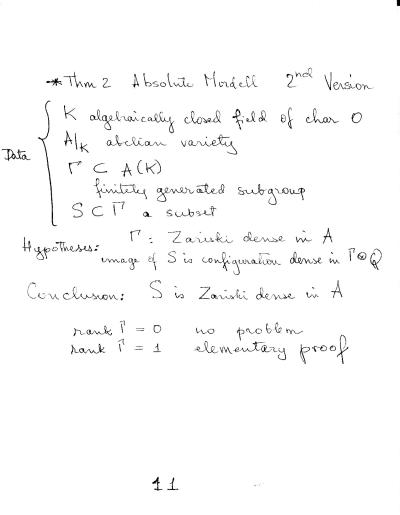 * Thm 2 Absolute Mordell 2nd Version
Data
K algebraically closed field of char 0
A/K abelian variety
Γ ⊂ A(K)
finitely generated subgroup
S ⊂ Γ a subset
Hypotheses: Γ: Zariski dense in A
image of S is configuration dense in Γ⊗Q
Conclusion: S is Zariski dense in A
rank Γ = 0 no problem
rank Γ = 1 elementary proof
11